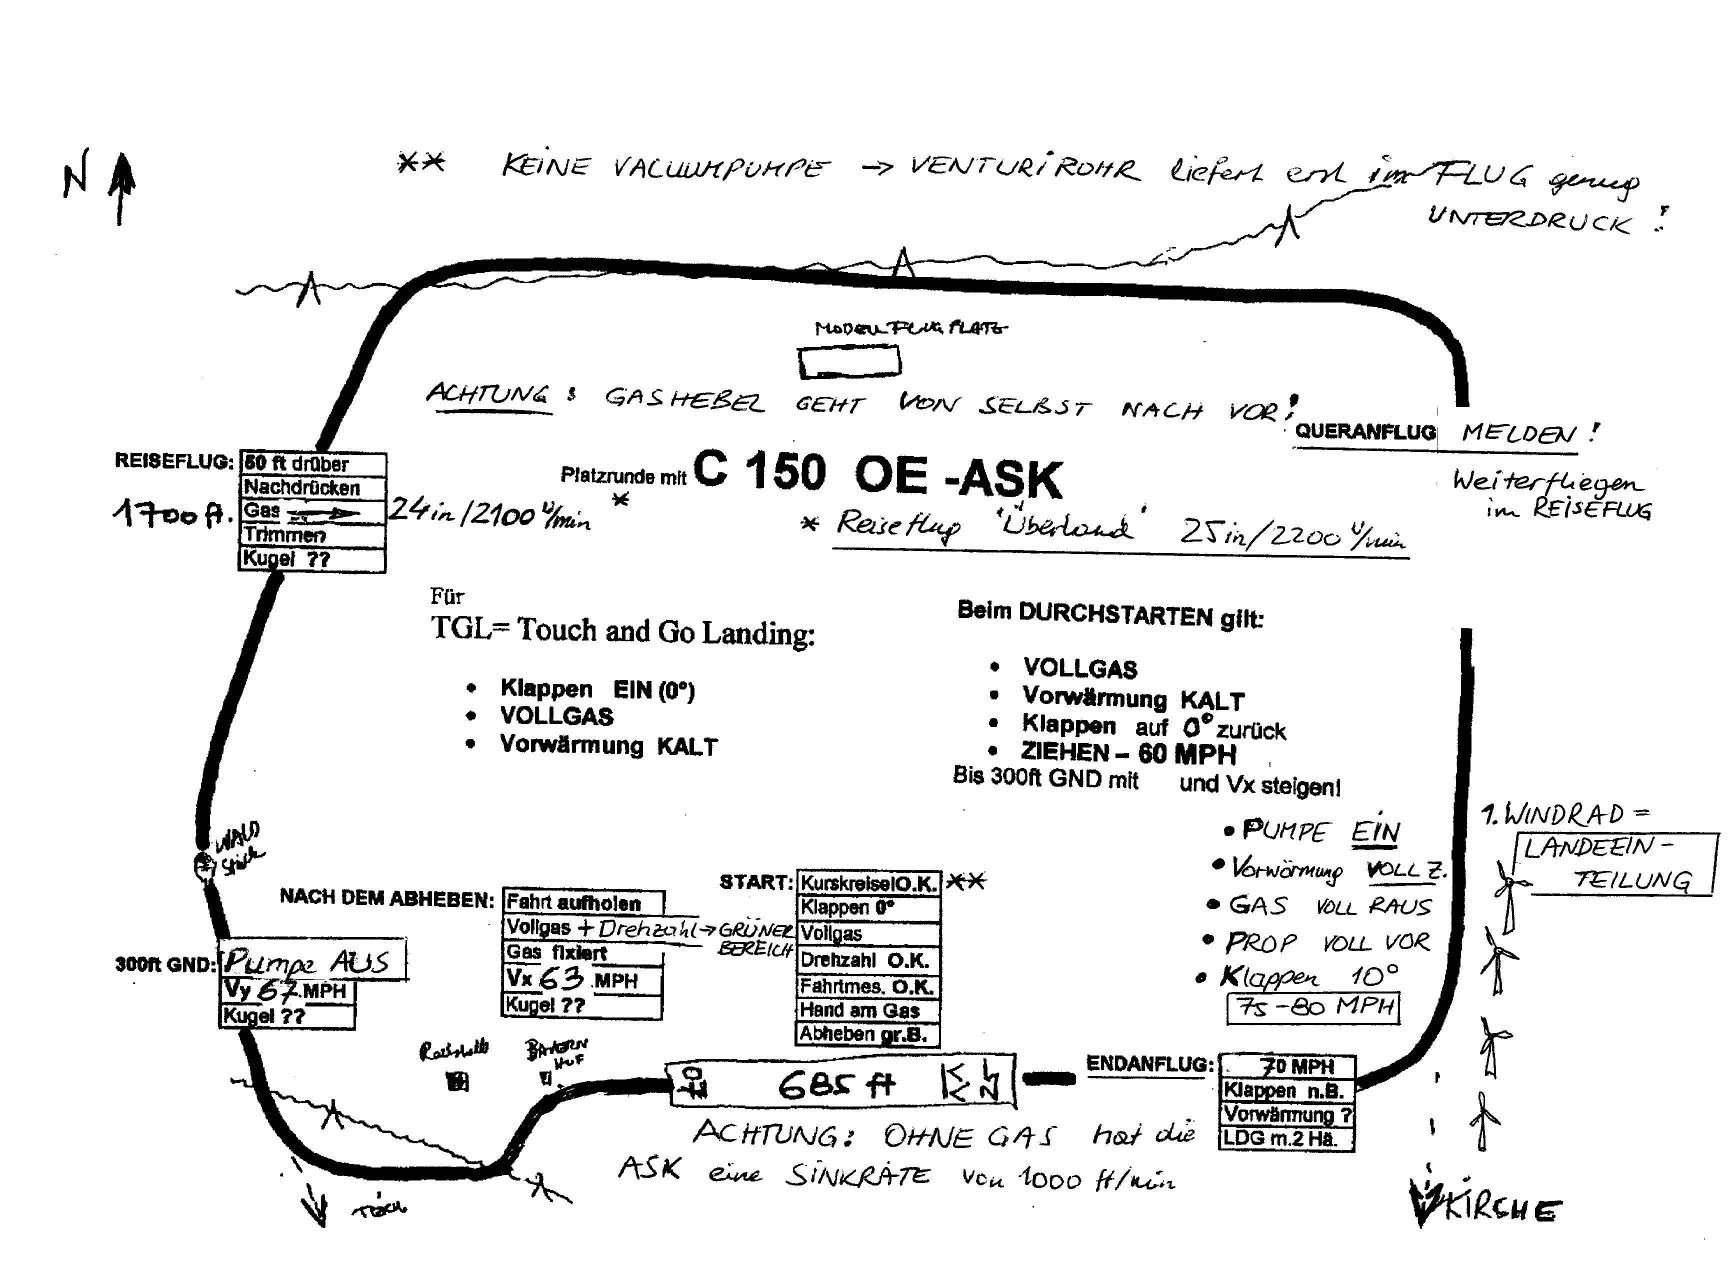 N
** KEINE VACUUMPUMPE → VENTURIROHR liefert erst im FLUG genug
UNTERDRUCK !
MODELLFLUGPLATZ
ACHTUNG : GASHEBEL GEHT VON SELBST NACH VOR!
QUERANFLUG MELDEN !
Weiterfliegen
im REISEFLUG
REISEFLUG:
1700 ft.
50 ft drüber
Nachdrücken
Gas
Trimmen
Kugel ??
24in/2100 U/min
*
Platzrunde mit C 150 OE -ASK
* Reiseflug "Überland" 25in/2200 U/min
Für
TGL= Touch and Go Landing:
• Klappen EIN (0°)
• VOLLGAS
• Vorwärmung KALT
Beim DURCHSTARTEN gilt:
• VOLLGAS
• Vorwärmung KALT
• Klappen auf 0° zurück
• ZIEHEN – 60 MPH
Bis 300ft GND mit und Vx steigen!
• PUMPE EIN
• Vorwärmung VOLL Z.
• GAS VOLL RAUS
• PROP VOLL VOR
• Klappen 10°
75-80 MPH
1. WINDRAD =
LANDEEIN-
TEILUNG
WALD
Stück
300ft GND:
Pumpe AUS
Vy 67 MPH
Kugel ??
NACH DEM ABHEBEN:
Fahrt aufholen
Vollgas + Drehzahl → GRÜNER
BEREICH
Gas fixiert
Vx 63 MPH
Kugel ??
START:
Kurskreisel O.K. **
Klappen 0°
Vollgas
Drehzahl O.K.
Fahrtmes. O.K.
Hand am Gas
Abheben gr.B.
BAYERN
HOF
685 ft
ENDANFLUG:
70 MPH
Klappen n.B.
Vorwärmung ?
LDG m.2 Hä.
ACHTUNG: OHNE GAS hat die
ASK eine SINKRATE von 1000 ft/min
KIRCHE